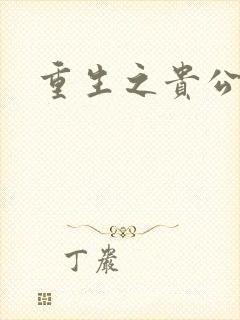 重生之貴公
丁嚴